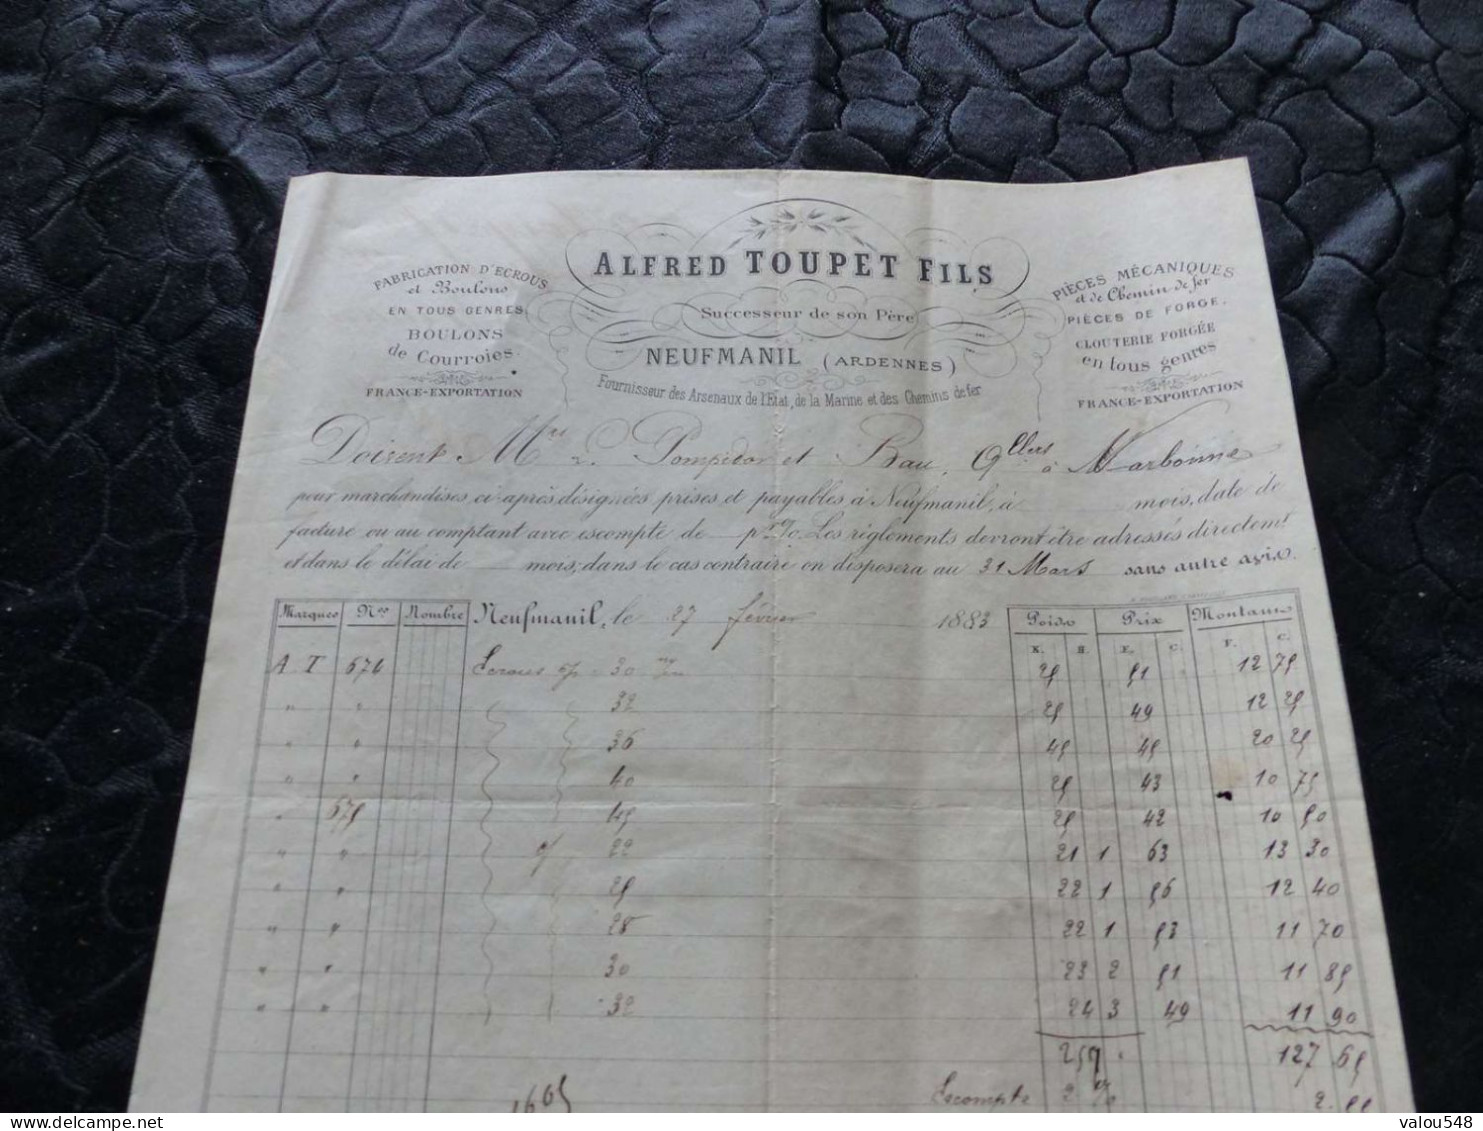 ALFRED TOUPET FILS
Successeur de son Père
NEUFMANIL (ARDENNES)
Fournisseur des Arsenaux de l'Etat, de la Marine et des Chemins de fer
FABRICATION D'ECROUS
et Boulons
EN TOUS GENRES
BOULONS
de Courroies.
FRANCE-EXPORTATION
PIÈCES MÉCANIQUES
et de Chemin de fer
PIÈCES DE FORGE.
CLOUTERIE FORGÉE
en tous genres
FRANCE-EXPORTATION
Doivent Mrs L. Pompidor et Bau, Qllers à Narbonne
pour marchandises ci-après désignées prises et payables à Neufmanil, à mois, date de
facture ou au comptant avec escompte de pr %. Les règlements devront être adressés directemt
et dans le délai de mois; dans le cas contraire on disposera au 31 Mars sans autre avis.
Marques Nos Nombre Neufmanil, le 27 février 1883 Poids Prix Montans
K. H. F. C. F. C.
A T 674 Ecrous 6/p 30 m/m 25 51 12 75
" " 32 25 49 12 25
" " 36 45 45 20 25
" " 40 25 43 10 75
" 675 45 25 42 10 50
" " 22 21 1 63 13 30
" " 25 22 1 56 12 40
" " 28 22 1 53 11 70
" " 30 23 2 51 11 85
" " 32 24 3 49 11 90
259 127 65
1605 Escompte 2 % 2.55
delcampe.net
valou548